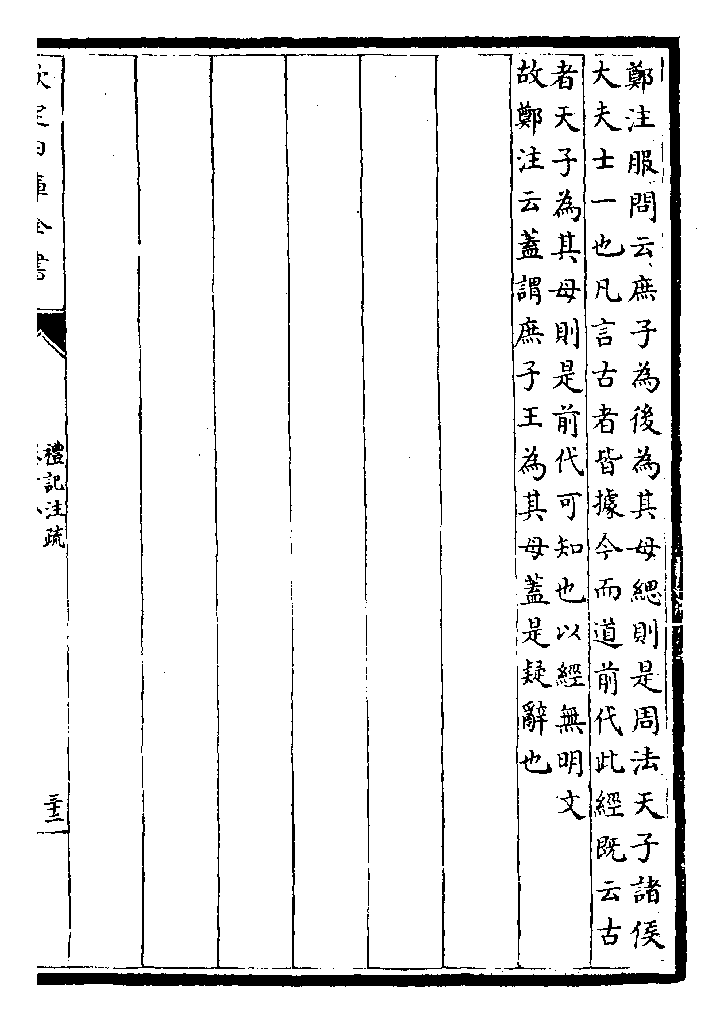 鄭注服問云庶子為後為其母緦則是周法天子諸侯
大夫士一也凡言古者皆據今而道前代此經既云古
者天子為其母則是前代可知也以經無明文
故鄭注云蓋謂庶子王為其母蓋是疑辭也
欽定四庫全書
禮記注疏